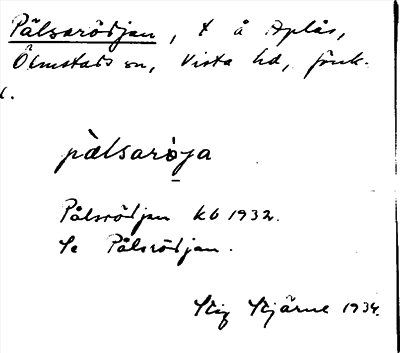 Pälsarödjan, t å Aplås,
Ölmstads sn, Vista hd, Jönk.
l.
pälsaröja
Pålsrödjan kb 1932.
Se Pålsrödjan.
Stig Stjärne 1934.